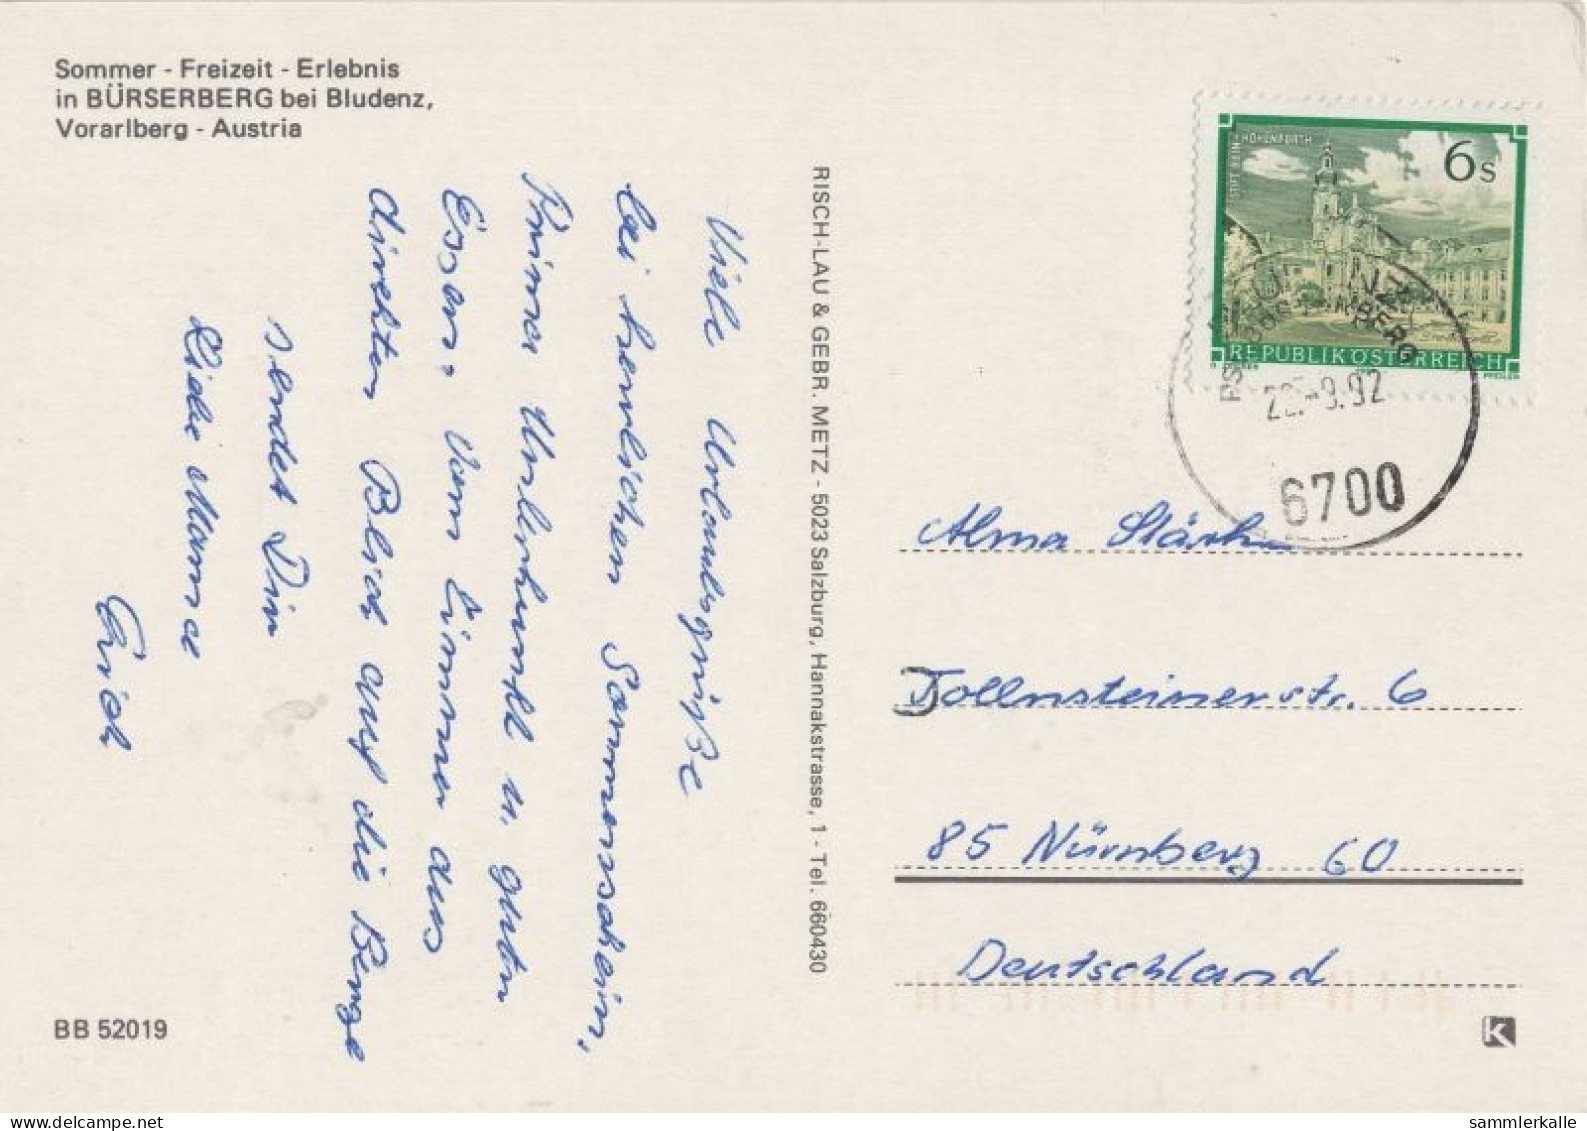 Sommer - Freizeit - Erlebnis
in BÜRSERBERG bei Bludenz,
Vorarlberg - Austria
Viele Urlaubsgrüße
bei herrlichen Sommerschein,
Prima Unterkunft u. guten
Essen. Vom Zimmer aus
direkten Blick auf die Berge
sendet Dir
Liebe Mamse
Erich
BB 52019
RISCH-LAU & GEBR. METZ - 5023 Salzburg, Hannakstrasse, 1 - Tel. 660430
HOHENFURTH
6 S
REPUBLIK ÖSTERREICH
PFEILER
-9.92
6700
Alma
Tollnsteinerstr. 6
85 Nürnberg 60
Deutschland
K
sammlerkalle